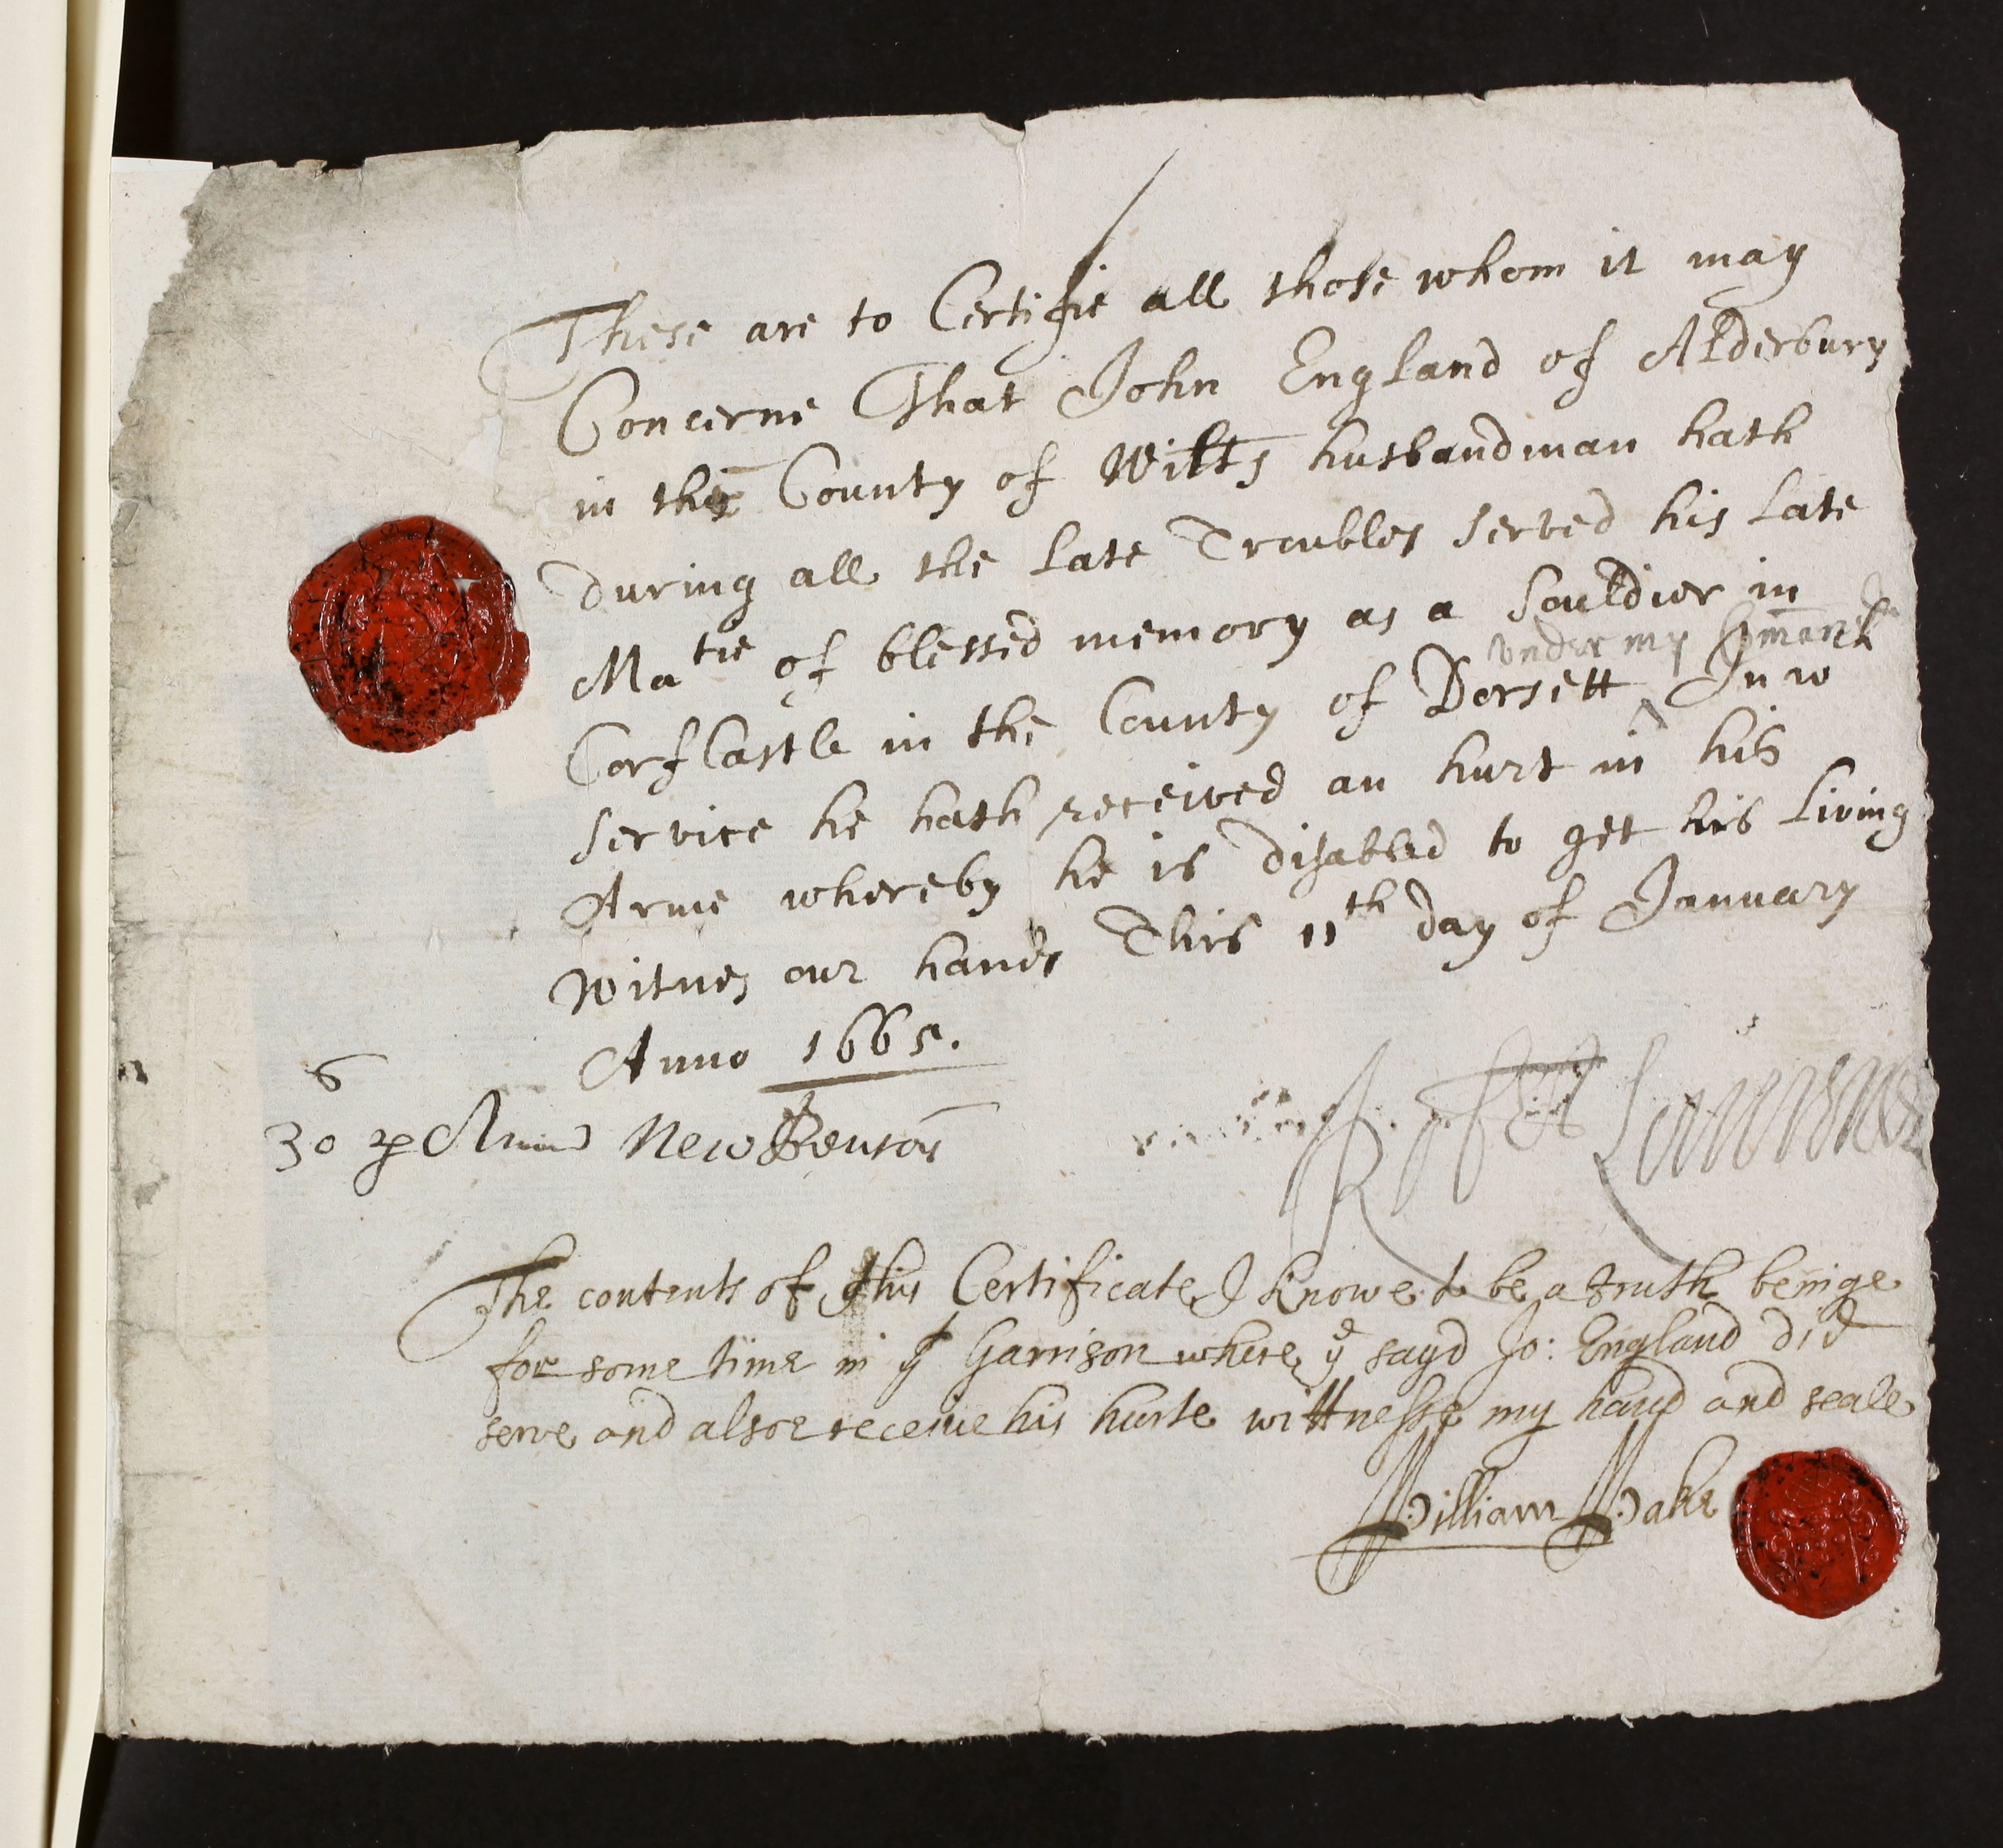 These are to Certifie all those whom it may
Concerne That John England of Alderbury
in the County of Wiltš husbandman hath
during all the late Troubles served his late
Matie of blessed memory as a Souldier in
under my Comand
Corf Castle in the County of Dorsett ^ In wch
service he hath received an hurt in his
Arme whereby he is disabled to get his living
Witnes our hands This 11th day of January
Anno 1665.
s
30 p Annũ New Penson
Lawrence
The contents of this Certificate I knowe to be a truth beinge
for some time in ye Garrison where ye sayd Jo: England did
serve and alsoe receive his hurte wittnesse my hand and seale
William Wake